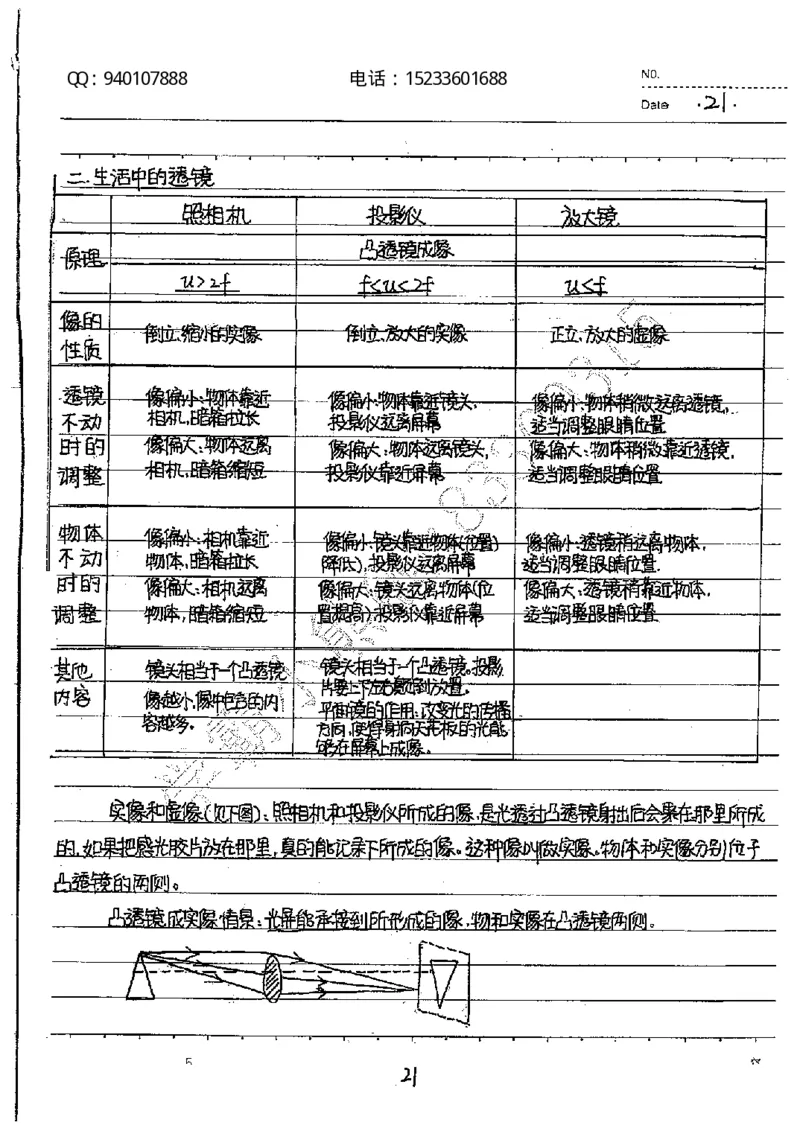 QQ：940107888 电话：15233601688 NO.
Date .21.
二.生活中的透镜
照相机 投影仪 放大镜
原理 凸透镜成像
u>2f f<u<2f u<f
像的性质 倒立、缩小的实像 倒立、放大的实像 正立、放大的虚像
透镜不动时的调整
像偏小:物体靠近
相机,暗箱拉长
像偏大:物体远离
相机,暗箱缩短
像偏小:物体靠近镜头,
投影仪远离屏幕
像偏大:物体远离镜头,
投影仪靠近屏幕
像偏小:物体稍微远离透镜,
适当调整眼睛位置
像偏大:物体稍微靠近透镜,
适当调整眼睛位置
物体不动时的调整
像偏小:相机靠近
物体,暗箱拉长
像偏大:相机远离
物体,暗箱缩短
像偏小:镜头靠近物体(位置
降低),投影仪远离屏幕
像偏大:镜头远离物体(位
置提高),投影仪靠近屏幕
像偏小:透镜稍远离物体,
适当调整眼睛位置.
像偏大:透镜稍靠近物体,
适当调整眼睛位置
其他内容
镜头相当于一个凸透镜
像越小,像中包含的内
容越多。
镜头相当于一个凸透镜。投影
片要上下左右颠倒放置。
平面镜的作用:改变光的传播
方向,使得射向天花板的光能
够在屏幕上成像。
实像和虚像(见下图):照相机和投影仪所成的像,是光透过凸透镜射出后会聚在那里所成
的,如果把感光胶片放在那里,真的能记录下所成的像。这种像叫做实像。物体和实像分别位于
凸透镜的两侧。
凸透镜成实像情景:光屏能承接到所形成的像,物和实像在凸透镜两侧.
5
21